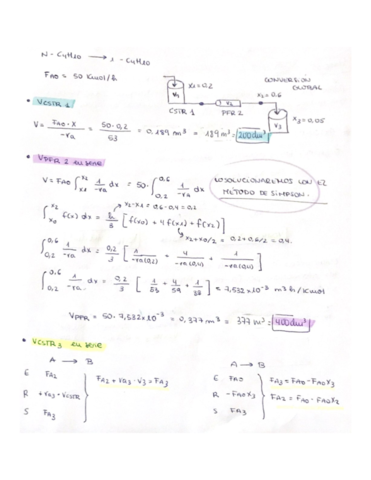 N - C4H10 → i - C4H10
FA0 = 50 Kmol/h
X1 = 0,2
V1
CSTR 1
V2
PFR 2
X2 = 0,6
CONVERSION GLOBAL
V3
X3 = 0,05
• VCSTR 1
V = FA0 · X / -ra = 50 · 0,2 / 53 = 0,189 m³ = 189 m³ = 200 dm³
• VPFR 2 en serie
V = FA0 ∫ x1 x2 1/-ra dx = 50 · ∫ 0,2 0,6 1/-ra dx
LO SOLUCIONAREMOS CON EL MÉTODO DE SIMPSON.
∫ x0 x2 f(x) dx = h/3 [f(x0) + 4f(x1) + f(x2)]
x2 - x1 = 0,6 - 0,4 = 0,2
x2 + x0/2 = 0,2 + 0,6/2 = 0,4.
∫ 0,2 0,6 1/-ra dx = 0,2/3 [1/-ra(0,2) + 4/-ra(0,4) + 1/-ra(0,6)]
∫ 0,2 0,6 1/-ra dx = 0,2/3 [1/53 + 4/59 + 1/38] = 7,532x10⁻³ m³ h/Kmol
VPFR = 50 · 7,532x10⁻³ = 0,377 m³ = 377 m³ = 400 dm³
• VCSTR 3 en serie
A → B
E FA2
R + ra3 · VCSTR
S FA3
FA2 + ra3 · V3 = FA3
A → B
E FA0
R - FA0X3
S FA3
FA3 = FA0 - FA0X3
FA2 = FA0 - FA0X2